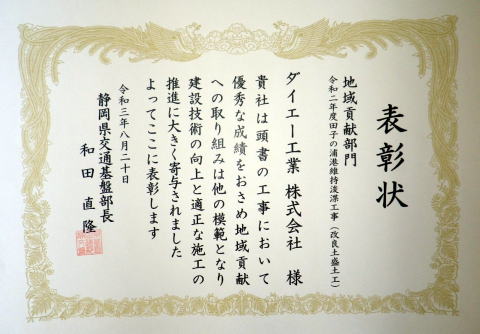 表彰状
地域貢献部門
令和二年度田子の浦港維持浚渫工事（改良土盛土工）
ダイエー工業 株式会社 様
貴社は頭書の工事において
優秀な成績をおさめ地域貢献
への取り組みは他の模範となり
建設技術の向上と適正な施工の
推進に大きく寄与されました
よってここに表彰します
令和三年八月二十日
静岡県交通基盤部長
和田 直隆